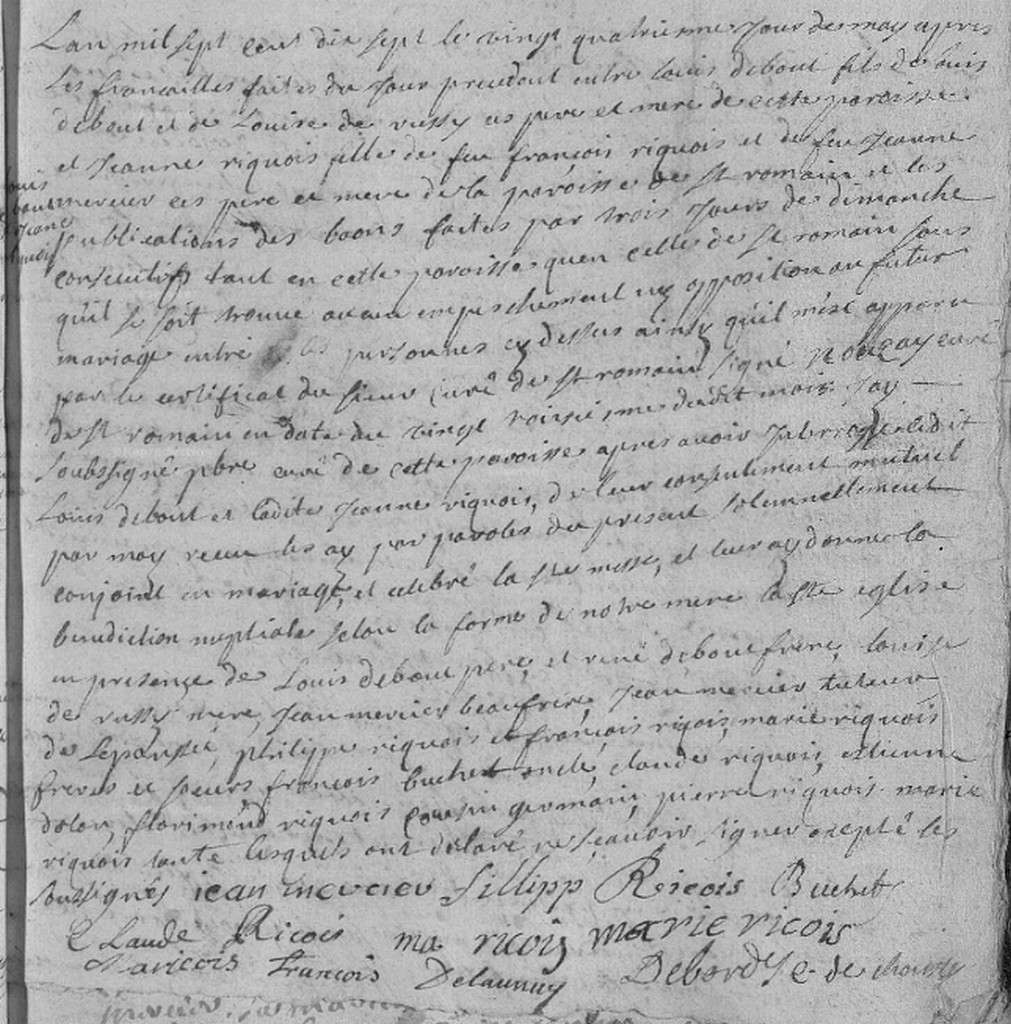 Lan mil sept cent dix sept le vingt quatriesme Jour de may apres
les fiancailles faites du Jour precedent entre louis debout fils de louis
debout et de Louise de russy ses pere et mere de cette paroisse
et Jeanne riquois fille de feu françois riquois et de feu Jeanne
mercier ces pere et mere de la paroisse de St romain et les
publications des bans faites par trois Jours de dimanche
consecutifs tant en cette paroisse quen celle de St romain sans
quil se soit trouvé aucun empeschement ny opposition au futur
mariage entre les personnes cy dessus ainsy quil m'est apparu
par le certificat du sieur curé de St romain signé curé
de St romain en date du vingt troisiesme dudit mois Jay
soubssigné pbre curé de cette paroisse apres avoir Interrogé ledit
Louis debout et ladite Jeanne riquois, de leur consentement mutuel
par moy receu les ay par paroles de present solennellement
conjoint en mariage, et celebré la ste messe, et leur ay donné la
benediction nuptiale selon la forme de notre mere la Ste eglise
en presence de Louis debout pere, et rené debout frere, louise
de russy mere, Jean mercier beaufrere, Jean mercier tuteur
de philippe riquois et françois riqois, marie riquois
freres et soeurs françois buchet oncle, claude riquois, estienne
dolon, florimond riquois cousin germain, pierre riquois marie
riquois tante lesquels ont declaré ne sçauoir signer excepté les
soussignés jean mercier fillipp Ricois Buchet
Claude Ricois ma ricois marie ricois
François Delaunay